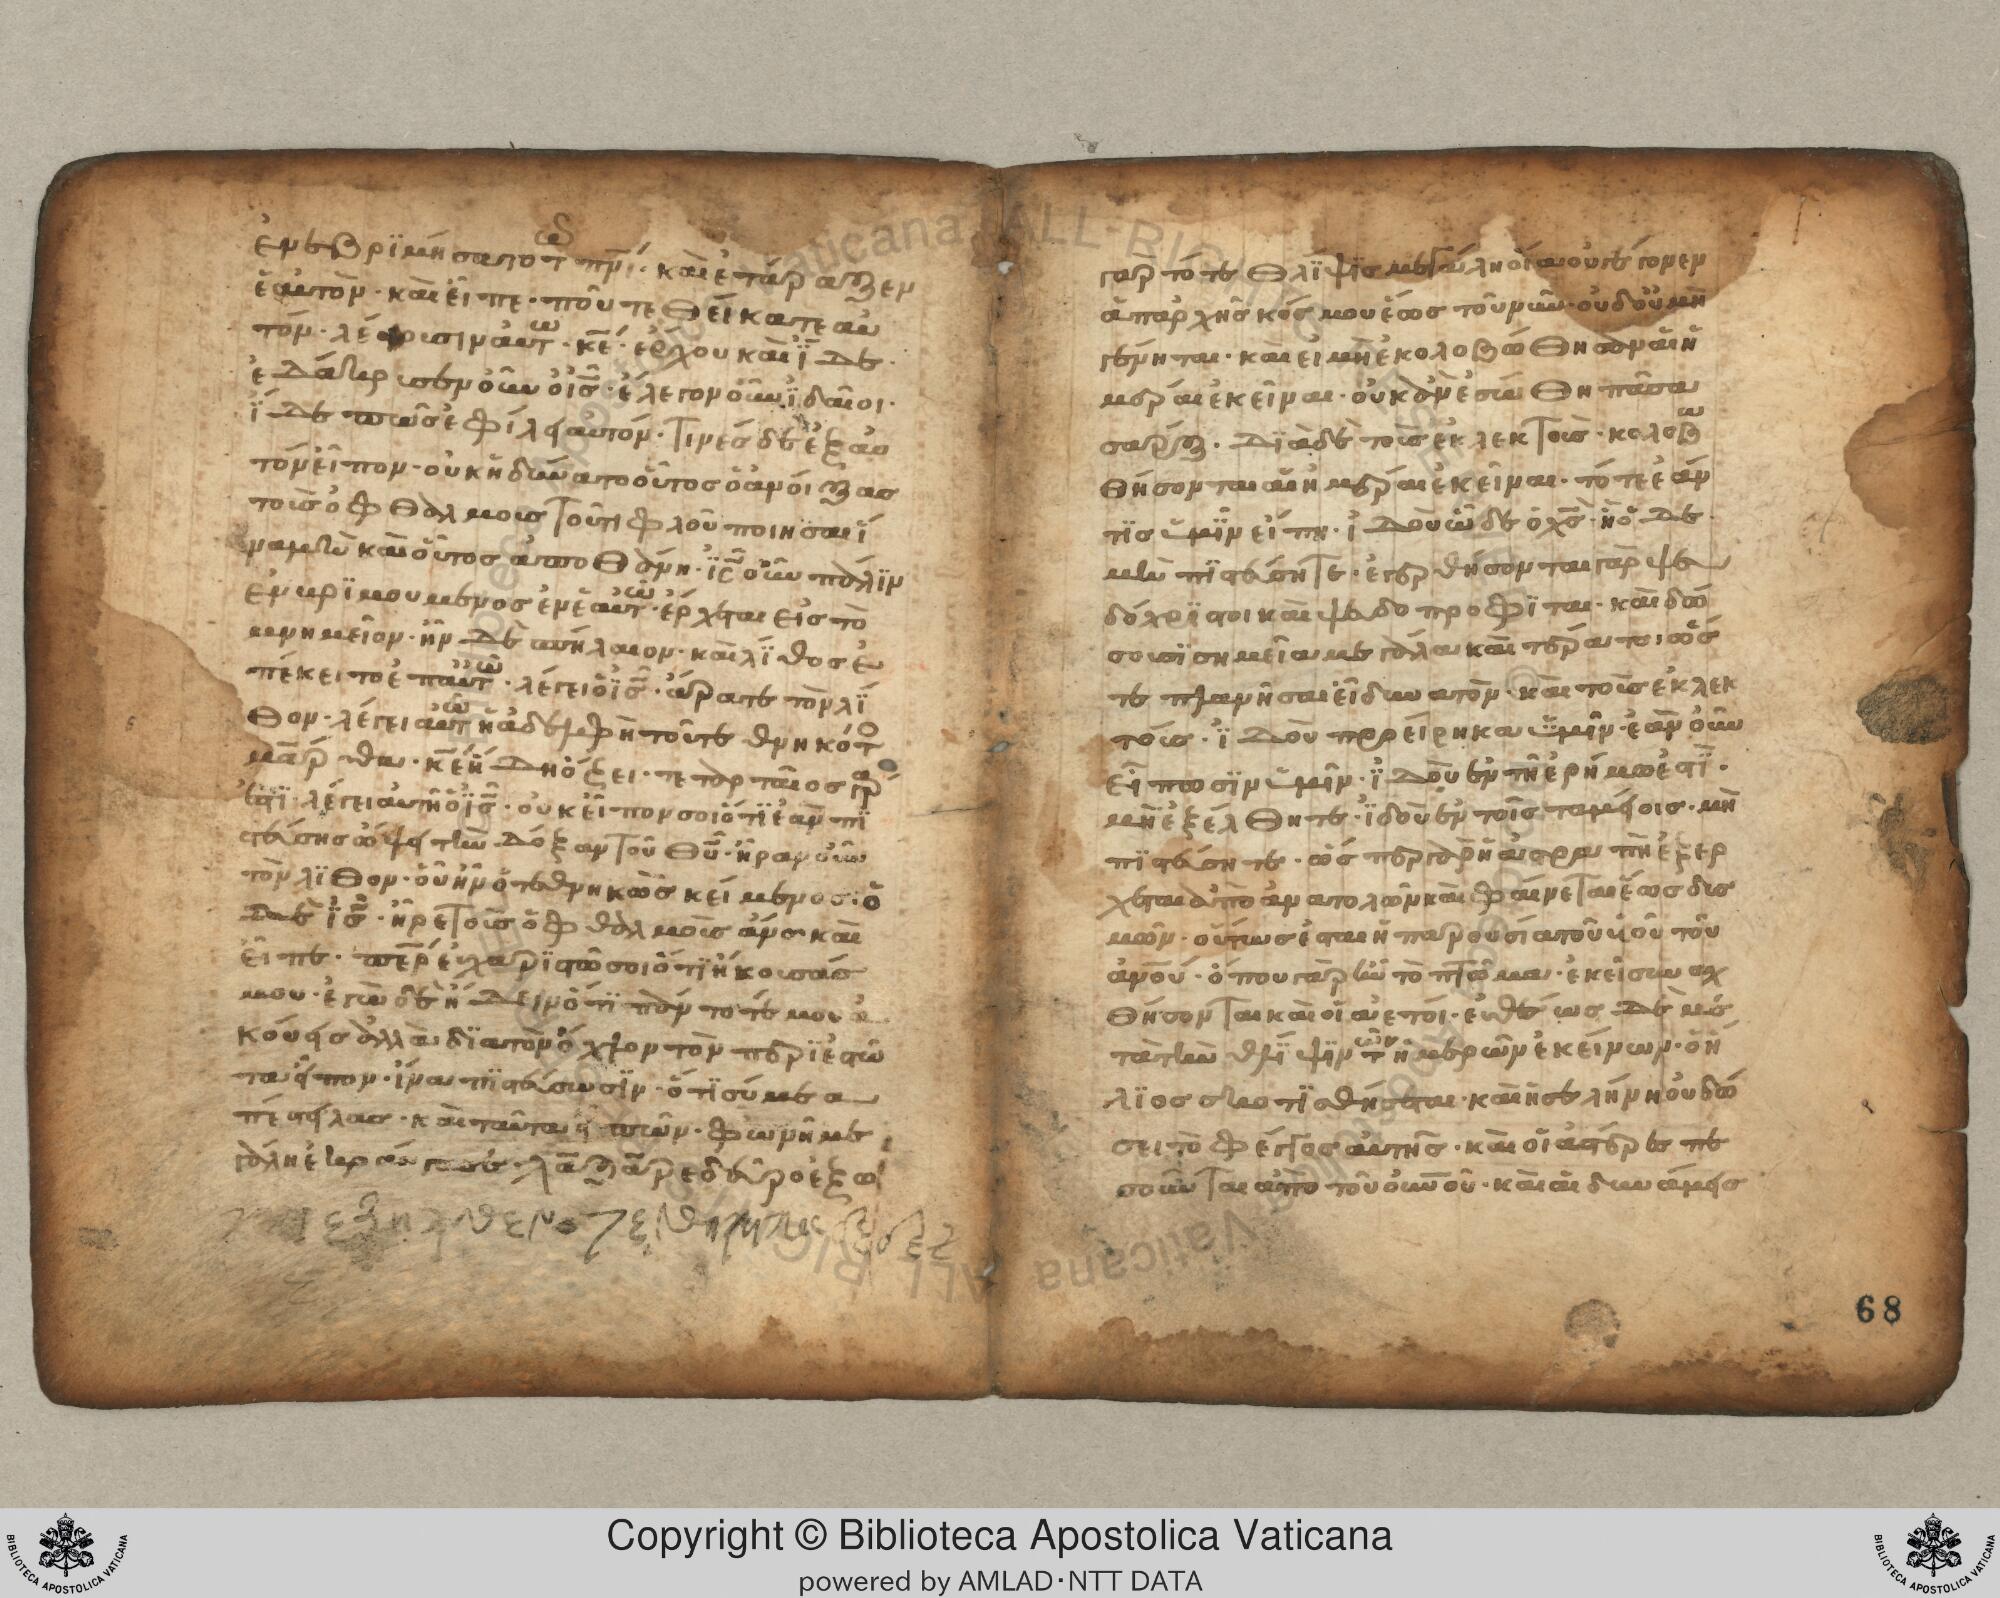 ἐνεβριμήσατο τω πνι· καὶ ἐτάραξεν
ἑαυτὸν· καὶ εἶπε· ποῦ τεθείκατε αὐ
τόν· λέγουσιν αὐτω· κε· ἔρχου καὶ ἴδε·
ἐδάκρυσεν οὖν ὁ ις· ἔλεγον οὖν ἰδαῖοι·
ἴδε πῶς ἐφίλει αὐτόν· τινὲς δὲ ἐξ αὐ
τόν εἶπον· οὐκ ἠδύνατο οὗτος ὁ ἀνοίξας
τοῖς ὀφθαλμοις τοῦ τιφλοῦ ποιησαι ἵ
να μὴ καὶ οὗτος ἀποθάνη· ις οὖν πάλιν
ἐνβριμουμενος ἐν ἑαυτω· ἔρχεται εἰς τὸ
μνημεῖον· ἦν δὲ σπήλαιον· καὶ λίθος ἐ
πέκειτο ἐπ αὐτω· λέγει ὁ ις· ἄρατε τὸν λί
θον· λέγει αὐτω ἡ ἀδελφὴ τοῦ τεθνηκότο
μάρθα· κε ἤδη ὄζει· τετορταῖος γάρ
ἐστι· λέγει αὐτῆ ὁ ις· οὐκ εἶπον σοι ὅτι ἐὰν πι
στεύσης ὄψει τὴν δόξαν τοῦ θυ· ἦραν οὖν
τὸν λίθον· οὗ ἦν ὁ τεθνηκὼς κείμενος· ὁ
δὲ ις· ἦρε τοῖς ὀφθαλμοῖς ἄνω καὶ
εἶπε· περ εὐχαριστῶ σοι ὅτι ἤκουσάς
μου· ἐγὼ δὲ ἤδειν ὅτι πάντοτέ μου ἀ
κούεις ἀλλὰ διὰ τὸν ὄχλον τὸν περιεστῶ
τα εἶπον· ἵνα πιστεύσωσιν· ὅτι σύ με ἀ
πέστειλας· καὶ ταῦτα εἰπών· φωνῆ με
γάλη ἐκραύγασε· λάζαρε δεῦρο ἔξω
γὰρ τότε θλίψις μεγάλη οἵα οὐ γέγονεν
ἀπαρχῆς κόσμου ἕως τοῦ νῦν· οὐδοῦ μὴ
γένηται· καὶ εἰ μὴ ἐκολοβώθησαν αἱ ἡ
μέραι ἐκεῖναι· οὐκ ἂν ἐσώθη πᾶσα
σάρξ· διὰ δὲ τοῖς ἐκλεκτοις· κολοβω
θήσονται αἱ ἡμέραι ἐκεῖναι· τότε ἐάν
τις ὑμῖν εἴπη· ἰδοὺ ὧδε ὁ χς· ἢ ὅδε·
μὴ πιστεύσητε· ἐγερθήσονται γὰρ ψευ
δόχριστοι καὶ ψευδοπροφίται· καὶ δώ
σουσι σημεῖα μεγάλα καὶ τέρατα· ὥσ
τε πλανῆσαι εἰ δυνατόν· καὶ τοῖς ἐκλεκ
τοῖς· ἰδοὺ προείρηκα ὑμῖν· ἐὰν οὖν
εἴπωσιν ὑμῖν· ἰδοὺ ἐν τῆ ἐρήμω ἐστί·
μὴ ἐξέλθητε· ἰδοὺ ἐν τοῖς ταμείοις· μὴ
πιστεύσητε· ὥσπερ γὰρ ἡ ἀστραπὴ ἐξερ
χεται ἀπὸ ἀνατολῶν καὶ φαίνεται ἕως δισ
μῶν· οὕτως ἔσται ἡ παρουσία τοῦ υἱοῦ τοῦ
ανου· ὅπου γὰρ ἐὰν τὸ πτῶμα· ἐκεῖ συναχ
θήσονται καὶ οἱ αετοί· εὐθέως δὲ με
τὰ τὴν θλίψιν τῶν ἡμερῶν ἐκείνων· ὁ ἥ
λιος σκοτισθήσεται· καὶ ἡ σελήνη οὐ δώ
σει τὸ φέγγος αὐτῆς· καὶ οἱ ἀστέρες πε
σοῦνται ἀπὸ τοῦ οὐνοῦ· καὶ αἱ δυνάμεις
68
Copyright © Biblioteca Apostolica Vaticana
powered by AMLAD·NTT DATA
BIBLIOTECA APOSTOLICA VATICANA
BIBLIOTECA APOSTOLICA VATICANA